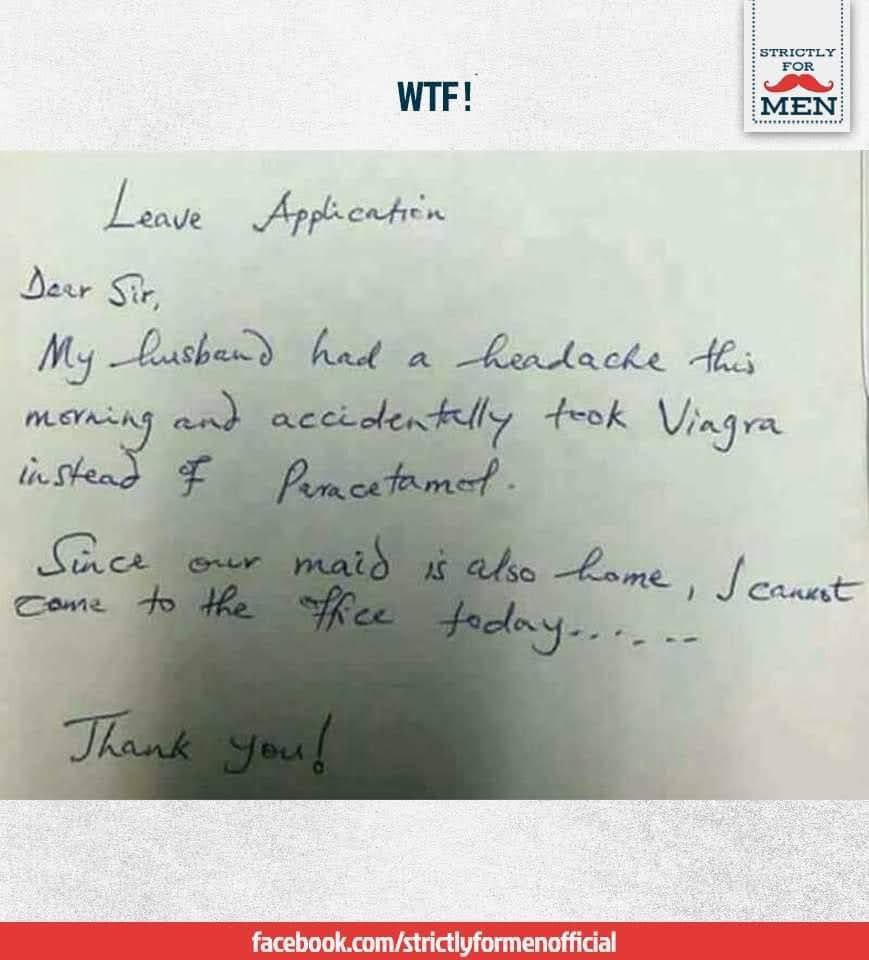 STRICTLY
FOR
MEN
WTF!
Leave Application
Dear Sir,
My husband had a headache this
morning and accidentally took Viagra
instead of Paracetamol.
Since our maid is also home, I cannot
come to the office today.......--
Thank you!
facebook.com/strictlyformenofficial